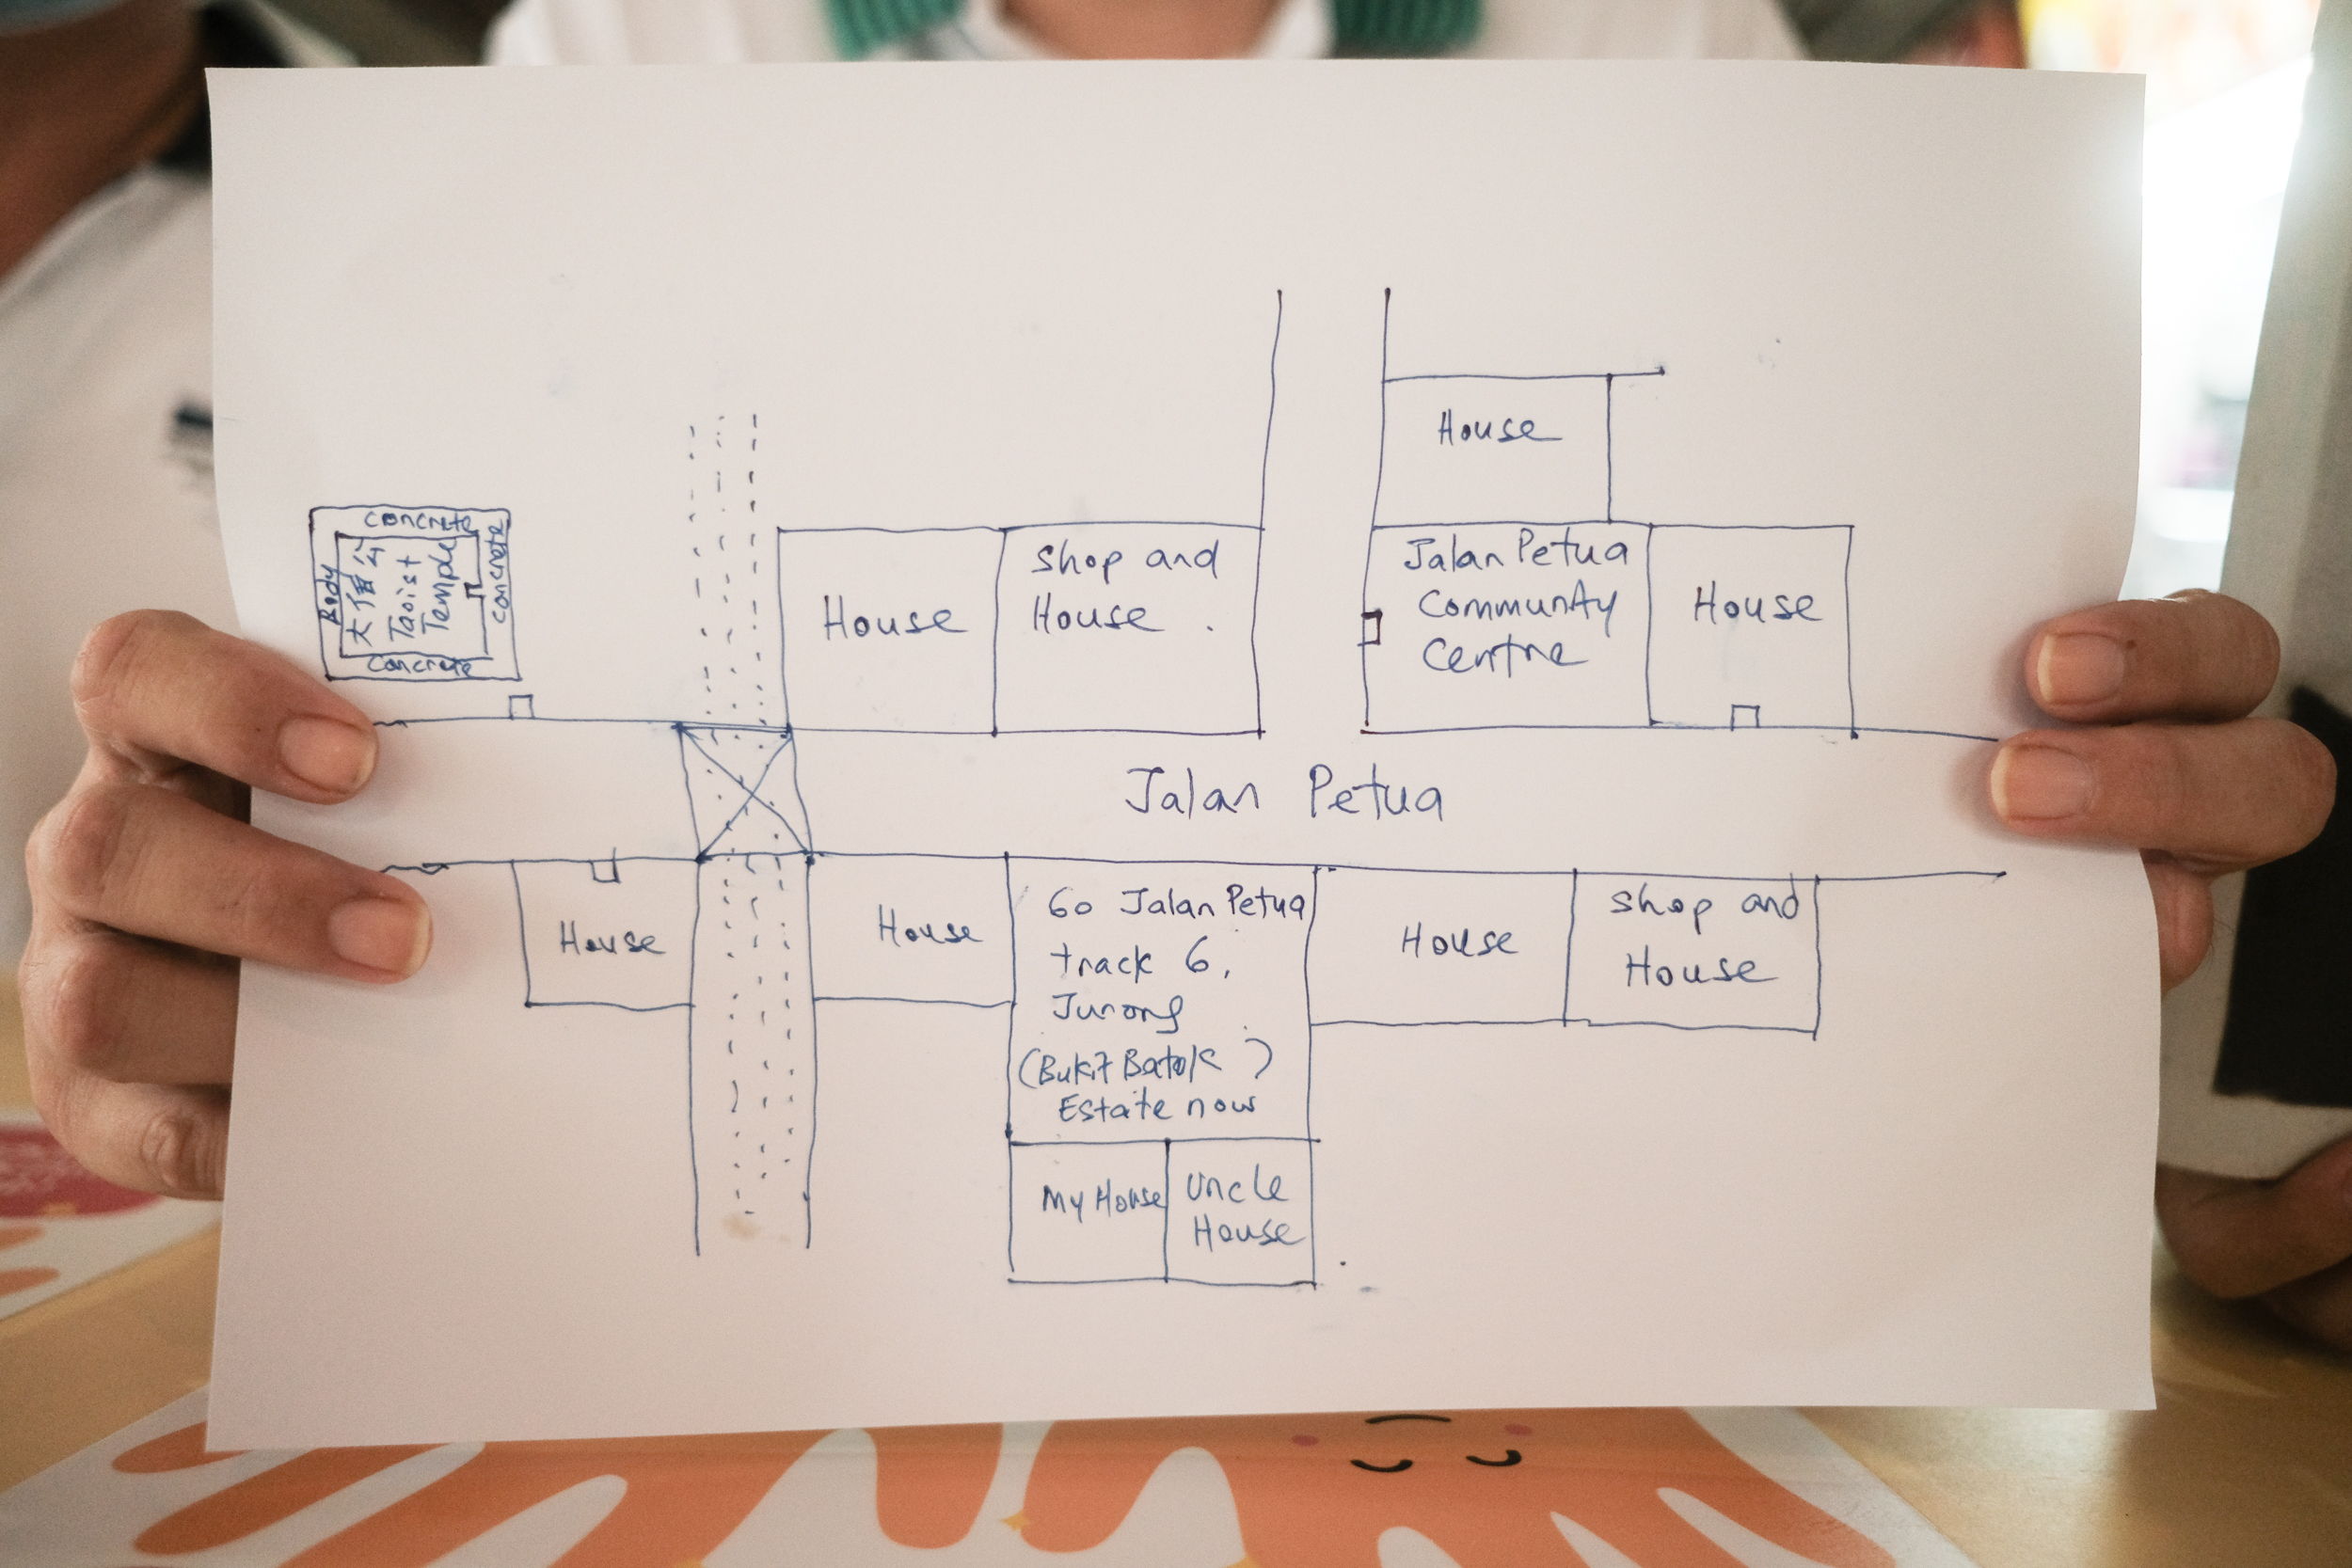 House
concrete
Body
大伯公
Taoist
Temple
concrete
concrete
House
shop and
House
Jalan Petua
Community
Centre
House
Jalan Petua
House
House
60 Jalan Petua
track 6,
Jurong
(Bukit Batok)
Estate now
House
shop and
House
My House
Uncle
House